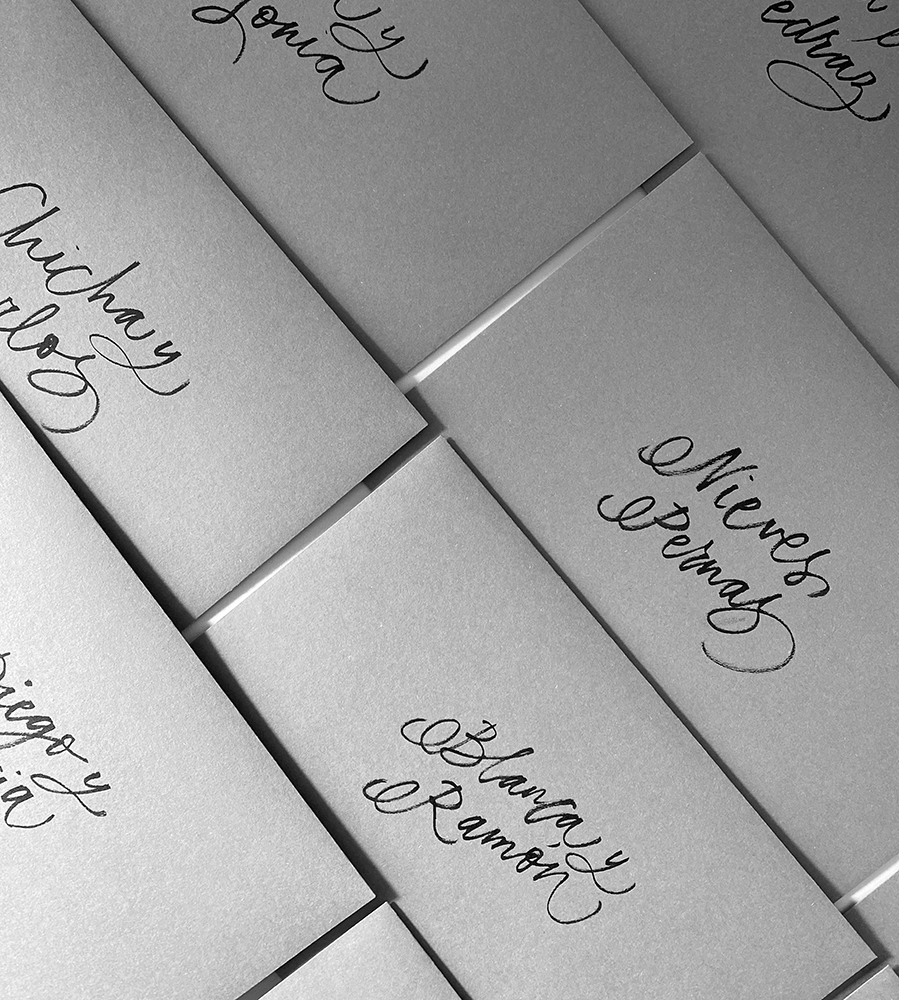 y
Sonia
edraz
Chicha y
rlos
Nieves
Pernas
Diego y
ia
Blanca y
Ramón